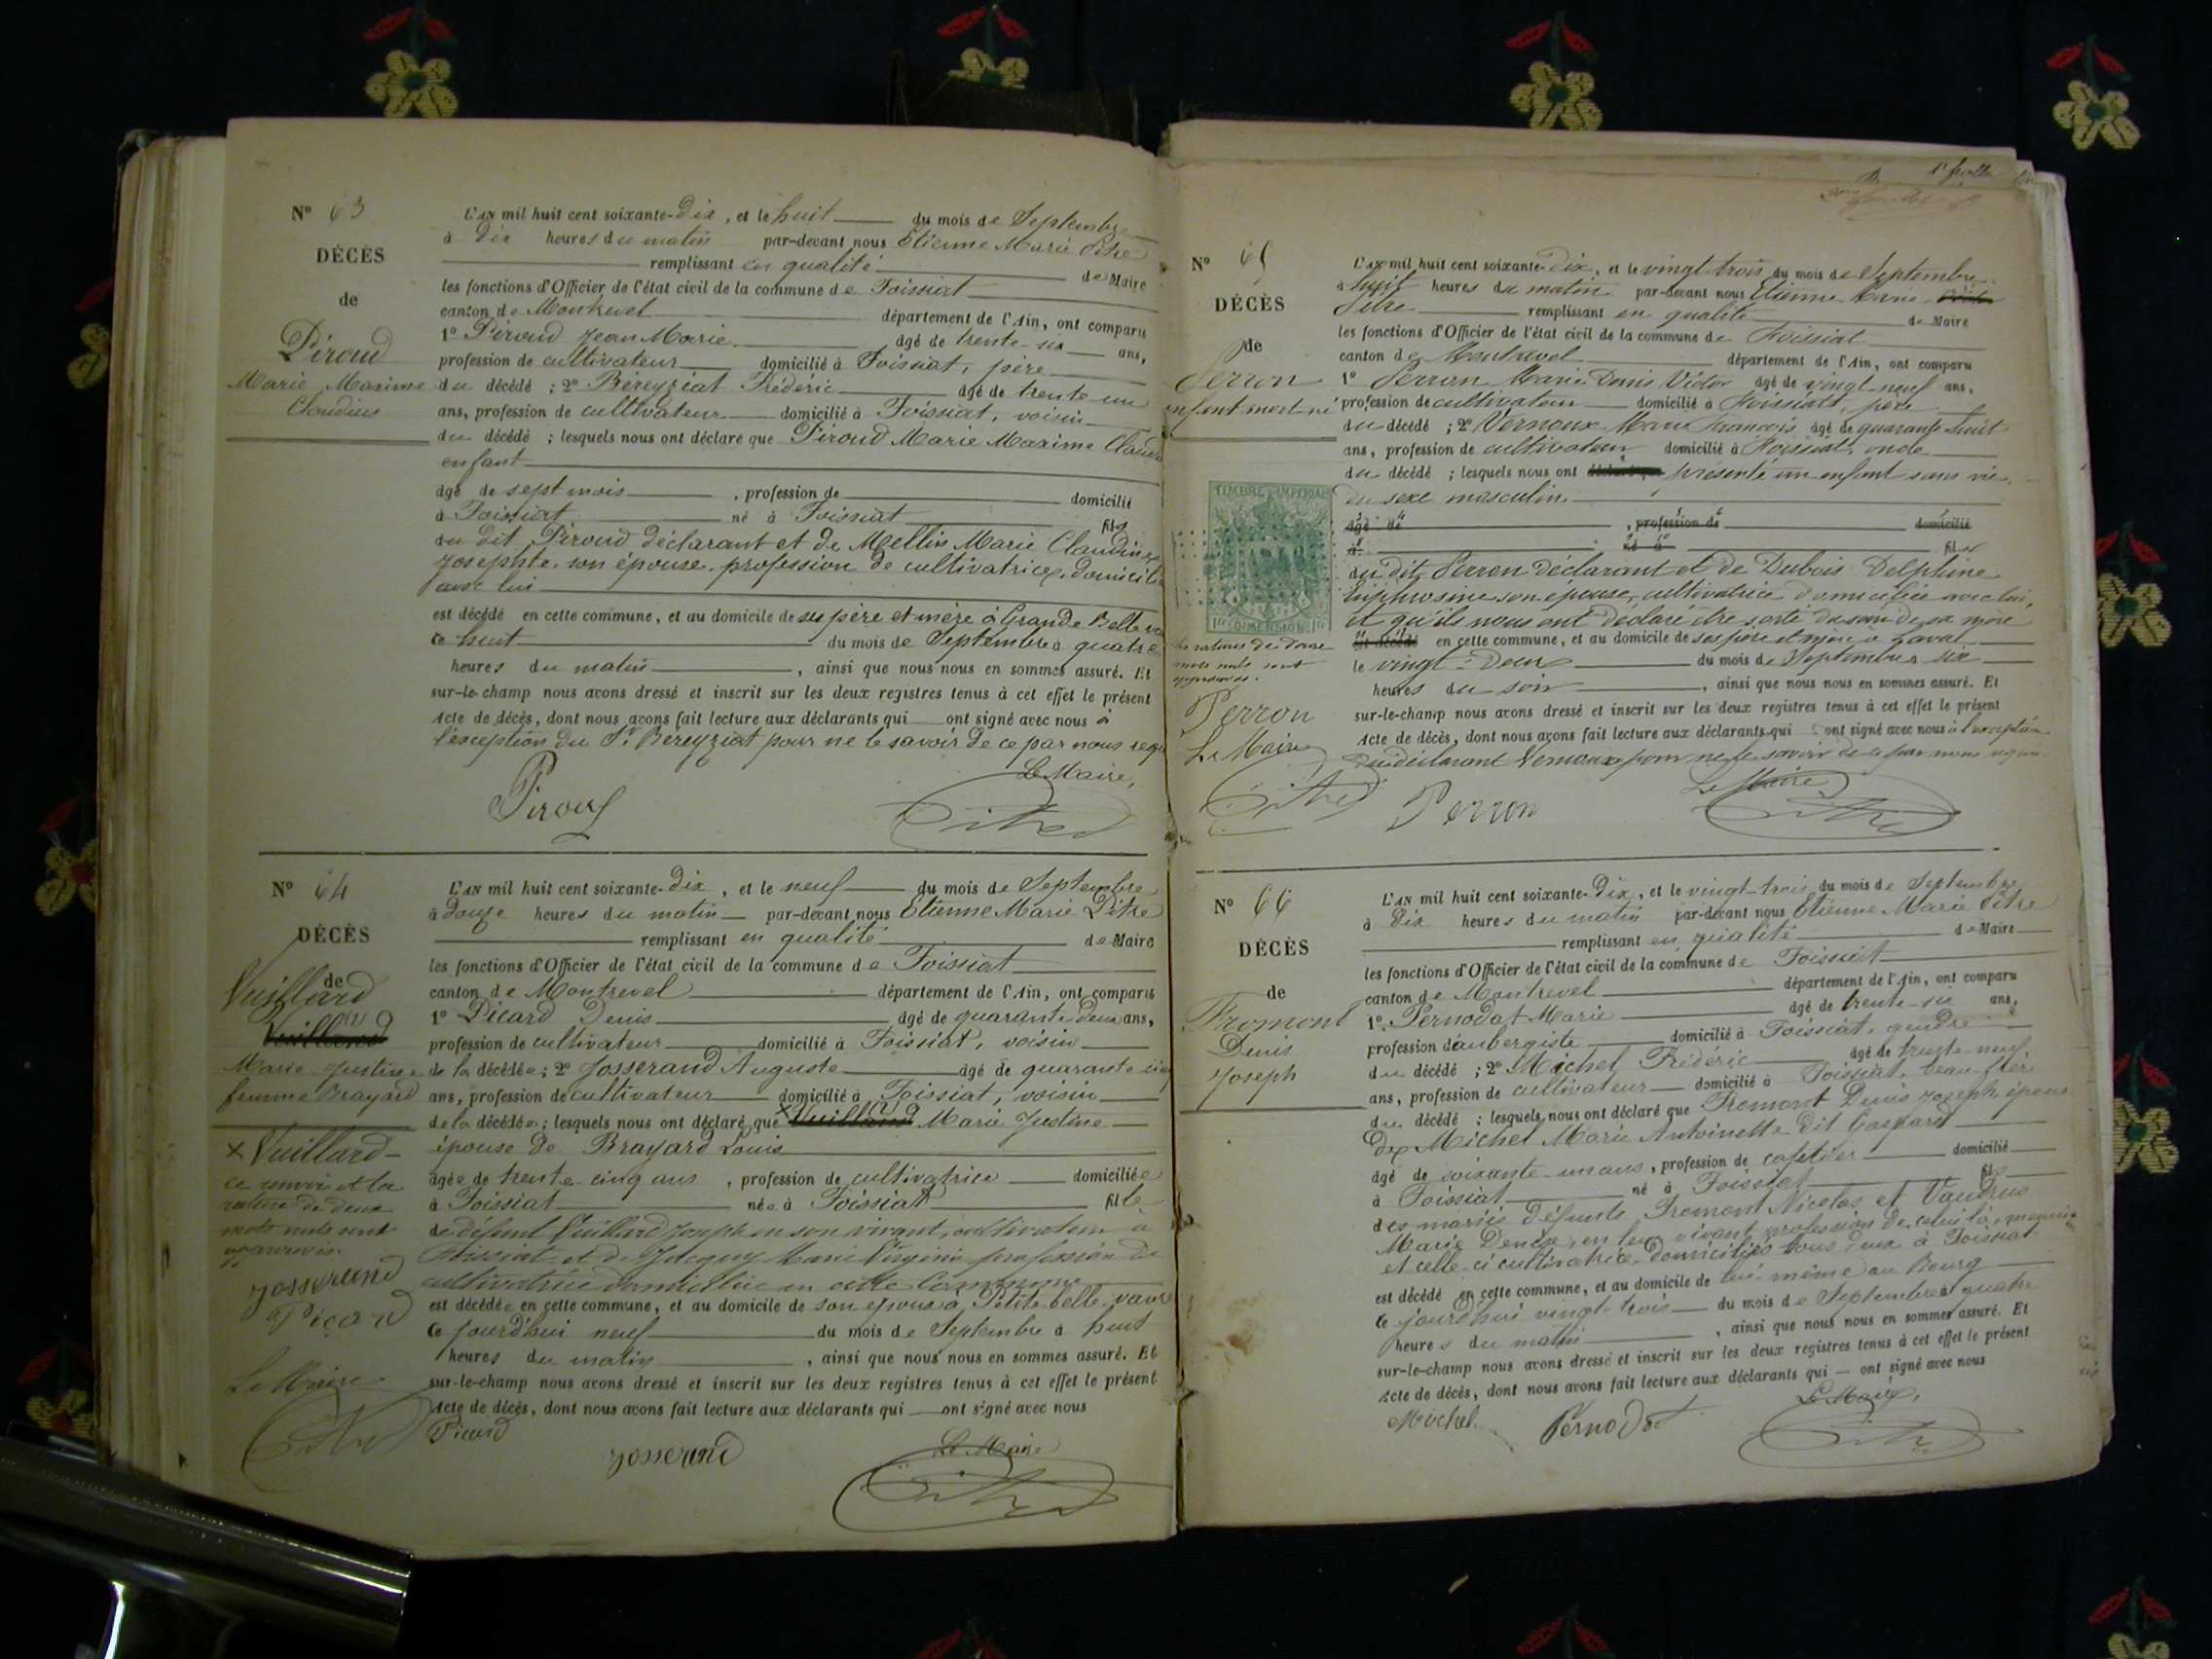 N° 63
DÉCÈS
de
Piroud
Marie Maxime
Claudius
L'AN mil huit cent soixante-Dix, et le huit du mois de Septembre
à Dix heures du matin par-devant nous Etienne Marie Pitre
remplissant en qualité de Maire
les fonctions d'Officier de l'état civil de la commune de Foissiat
canton de Montrevel département de l'Ain, ont comparu
1° Piroud Jean Marie âgé de trente-six ans,
profession de cultivateur domicilié à Foissiat, père
du décédé ; 2° Béreyziat Fréderic âgé de trente un
ans, profession de cultivateur domicilié à Foissiat, voisin
du décédé ; lesquels nous ont déclaré que Piroud Marie Maxime
enfant
âgé de sept mois, profession de domicilié
à Foissiat né à Foissiat fils
du dit Piroud déclarant et de Mellin Marie Claudine
Josephte son épouse, profession de cultivatrice, domicilié
avec lui
est décédé en cette commune, et au domicile de ses père et mère à Grande Belle
ce huit du mois de Septembre à quatre
heures du matin, ainsi que nous nous en sommes assuré. Et
sur-le-champ nous avons dressé et inscrit sur les deux registres tenus à cet effet le présent
acte de décès, dont nous avons fait lecture aux déclarants qui ont signé avec nous à
l'exception du Sr Béreyziat pour ne le savoir de ce par nous
Le Maire,
Piroud
Pitre
N° 64
DÉCÈS
de
Vuillard
Marie Justine
femme Brayard
x Vuillard
ce renvoi et la
rature de deux
mots nuls sont
approuvés.
Josserand
Picard
Le Maire
Pitre
L'AN mil huit cent soixante-Dix, et le neuf du mois de Septembre
à douze heures du matin par-devant nous Etienne Marie Pitre
remplissant en qualité de Maire
les fonctions d'Officier de l'état civil de la commune de Foissiat
canton de Montrevel département de l'Ain, ont comparus
1° Picard Denis âgé de quarante deux ans,
profession de cultivateur domicilié à Foissiat, voisin
de la décédée ; 2° Josserand Auguste âgé de quarante
ans, profession de cultivateur domicilié à Foissiat, voisin
de la décédée ; lesquels nous ont déclaré que x Marie Justine
épouse de Brayard Louis
âgée de trente cinq ans, profession de cultivatrice domiciliée
à Foissiat née à Foissiat fille
de défunt Vuillard Joseph en son vivant, cultivateur à
Foissiat et de Marie profession de
cultivatrice domiciliée en cette Commune
est décédée en cette commune, et au domicile de son époux à Petite belle vavre
ce jourd'hui neuf du mois de Septembre à huit
heures du matin, ainsi que nous nous en sommes assuré. Et
sur-le-champ nous avons dressé et inscrit sur les deux registres tenus à cet effet le présent
Acte de décès, dont nous avons fait lecture aux déclarants qui ont signé avec nous
Picard
Josserand
Le Maire
Pitre
N° 65
DÉCÈS
de
Perron
enfant mort-né
TIMBRE IMPÉRIAL
DIMENSION
les ratures de douze
mots nuls sont
approuvés.
Perron
Le Maire
Pitre
L'AN mil huit cent soixante-Dix, et le vingt-trois du mois de Septembre
à huit heures du matin par-devant nous Etienne Marie
Pitre remplissant en qualité de Maire
les fonctions d'Officier de l'état civil de la commune de Foissiat
canton de Montrevel département de l'Ain, ont comparu
1° Perron Marie Denis Victor âgé de vingt-neuf ans,
profession de cultivateur domicilié à Foissiat, père
du décédé ; 2° Vernoux Marie François âgé de quarante huit
ans, profession de cultivateur domicilié à Foissiat, oncle
du décédé ; lesquels nous ont présenté un enfant sans vie
du sexe masculin
âgé de, profession de domicilié
à né à fils
du dit Perron déclarant et de Dubois Delphine
Euphrosine son épouse, cultivatrice domiciliée avec lui,
et qu'ils nous ont déclaré être sorti du sein de sa mère
est décédé en cette commune, et au domicile de ses père et mère à
le vingt-Deux du mois de Septembre à six
heures du soir, ainsi que nous nous en sommes assuré. Et
sur-le-champ nous avons dressé et inscrit sur les deux registres tenus à cet effet le présent
Acte de décès, dont nous avons fait lecture aux déclarants qui ont signé avec nous à l'exception
du déclarant Vernoux pour ne le savoir de ce par nous requis
Le Maire
Perron
Pitre
N° 66
DÉCÈS
de
Fromont
Denis
Joseph
L'AN mil huit cent soixante-Dix, et le vingt-trois du mois de Septembre
à Dix heures du matin par-devant nous Etienne Marie Pitre
remplissant en qualité de Maire
les fonctions d'Officier de l'état civil de la commune de Foissiat
canton de Montrevel département de l'Ain, ont comparu
1° Pernodat Marie âgé de trente-six ans,
profession d'aubergiste domicilié à Foissiat, gendre
du décédé ; 2° Michel Fréderic âgé de trente-neuf
ans, profession de cultivateur domicilié à Foissiat, beau-frère
du décédé ; lesquels nous ont déclaré que Fromont Denis Joseph, époux
de Michel Marie Antoinette dit Gaspard
âgé de soixante-un ans, profession de cafetier domicilié
à Foissiat né à Foissiat fils
des mariés défunts Fromont Nicolas et
Marie Denise, en leur vivant profession de, celui là,
et celle-ci cultivatrice, domiciliés tous deux à Foissiat
est décédé en cette commune, et au domicile de lui-même au Bourg
ce jourd'hui vingt-trois du mois de Septembre à quatre
heures du matin, ainsi que nous nous en sommes assuré. Et
sur-le-champ nous avons dressé et inscrit sur les deux registres tenus à cet effet le présent
acte de décès, dont nous avons fait lecture aux déclarants qui — ont signé avec nous
Le Maire,
Michel
Pernodat
Pitre